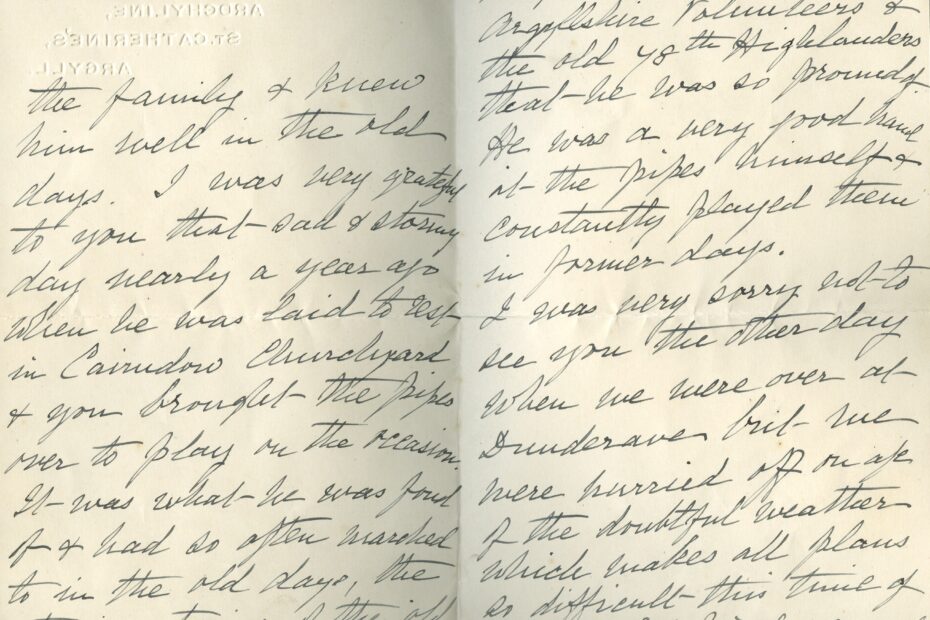 ARDCHYLINE,
ST. CATHERINE'S,
ARGYLL.
the family & knew
him well in the old
days. I was very grateful
to you that sad & stormy
day nearly a year ago
when he was laid to rest
in Cairndow Churchyard
& you brought the pipes
over to play on the occasion.
It was what he was fond
of & had so often marched
to in the old days, the
the old
Argyllshire Volunteers &
the old 78th Highlanders
that he was so proud of.
He was a very good hand
at the pipes himself &
constantly played them
in former days.
I was very sorry not to
see you the other day
when we were over at
Dunderave, but we
were hurried off on a/c
of the doubtful weather
which makes all plans
so difficult this time of